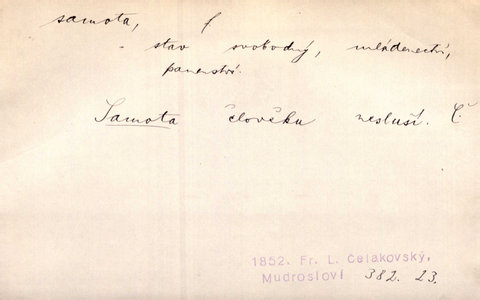 samota, f
- stav svobodný, mládenectví,
panenství.
Samota člověku nesluší. Č.
1852. Fr. L. Čelakovský,
Mudrosloví 382. 23.